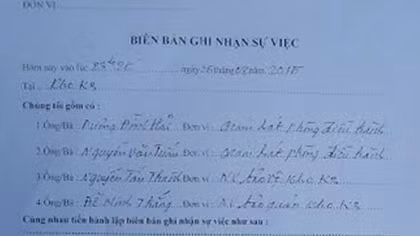 ĐƠN VỊ
BIÊN BẢN GHI NHẬN SỰ VIỆC
Hôm nay vào lúc ngày 26 tháng 08 năm 2015
Tại : Kho K2
Chúng tôi gồm có :
1.Ông/Bà : Dương Đình Đơn vị : Giám sát phòng điều hành
2.Ông/Bà : Nguyễn Văn Tuấn Đơn vị : Giám sát phòng điều hành
3.Ông/Bà : Nguyễn Tấn Thành Đơn vị : NV bảo vệ kho K2
4.Ông/Bà : Minh Thắng Đơn vị : NV bảo quản kho K2
Cùng nhau tiến hành lập biên bản ghi nhận sự việc như sau :